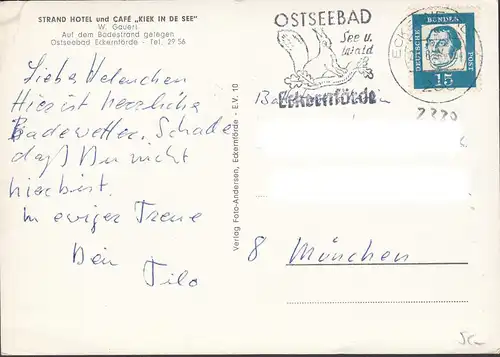 STRAND HOTEL und CAFÉ „KIEK IN DE SEE"
W. Gauerl
Auf dem Badestrand gelegen
Ostseebad Eckernförde - Tel. 29 56
Liebe
Hier ist herrliches
Badewetter. Schade
daß Du nicht
hier bist.
In ewiger Treue
Dein
Tilo
Verlag Foto-Andersen, Eckernförde - E.V. 10
OSTSEEBAD
See u.
Wald
Eckernförde
DEUTSCHE BUNDES POST
15
2220
8 München